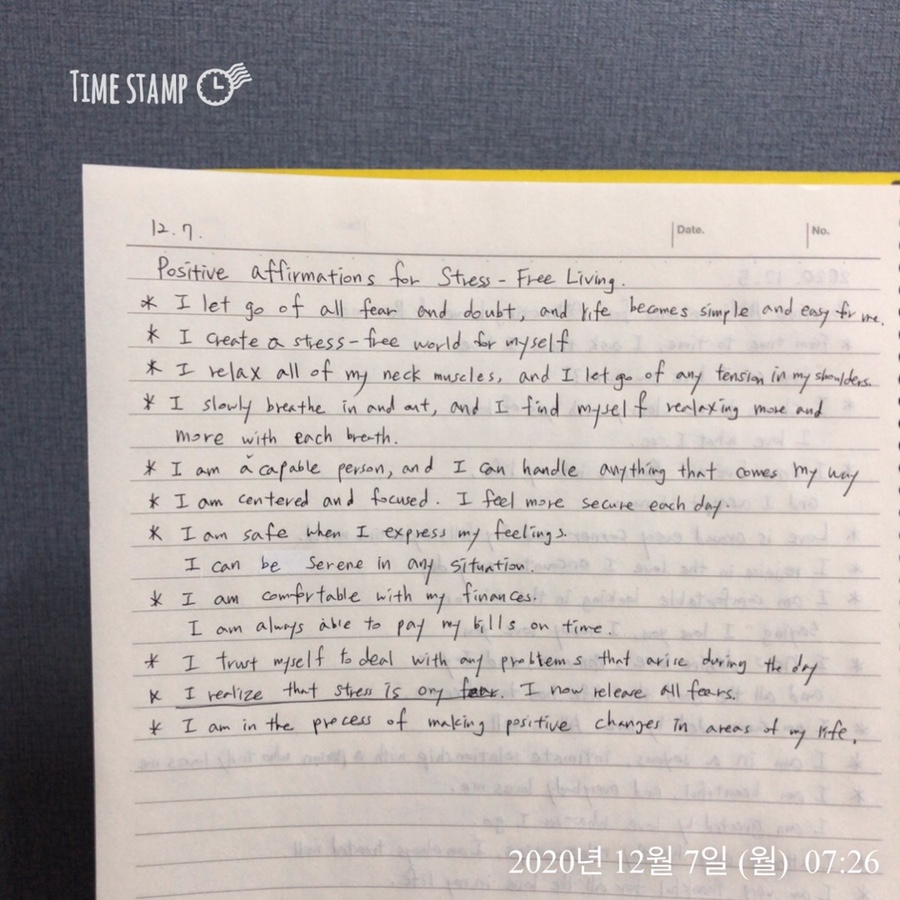 TIME STAMP
12.7.
Date.
No.
Positive affirmations for Stress-Free Living.
* I let go of all fear and doubt, and life becomes simple and easy for me.
* I create a stress-free world for myself
* I relax all of my neck muscles, and I let go of any tension in my shoulders.
* I slowly breathe in and out, and I find myself realaxing more and
more with each breath.
* I am a capable person, and I can handle anything that comes my way
* I am centered and focused. I feel more secure each day.
* I am safe when I express my feelings.
I can be serene in any situation.
* I am comfortable with my finances.
I am always able to pay my bills on time.
* I trust myself to deal with any problems that arise during the day
* I realize that stress is ony fear. I now releave all fears.
* I am in the process of making positive changes in areas of my life.
2020년 12월 7일 (월) 07:26